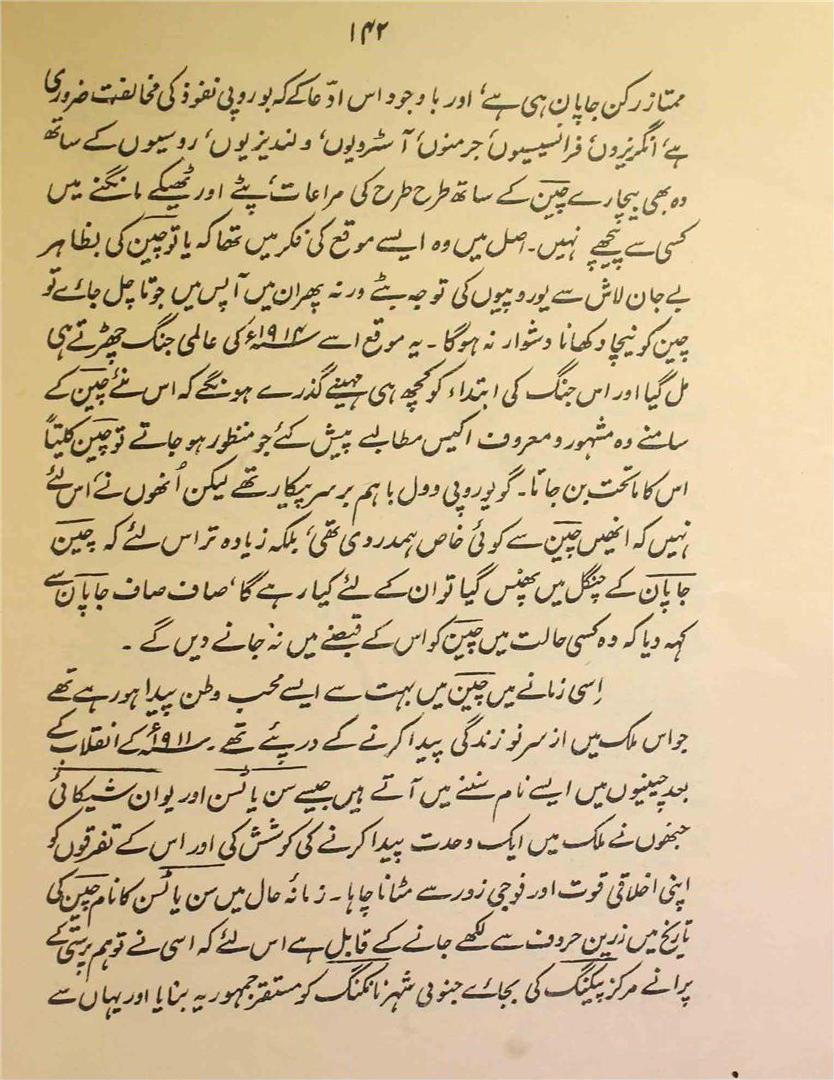 ۱۴۲
ممتاز رکن جاپان ہی ہے، اور باوجود اس ادّعا کے کہ یوروپی نفوذ کی مخالفت ضروری
ہے، انگریزوں، فرانسیسیوں، جرمنوں، آسٹرویوں، ولندیزیوں، روسیوں کے ساتھ
وہ بھی بیچارے چین کے ساتھ طرح طرح کی مراعات، پٹے اور ٹھیکے مانگنے میں
کسی سے پیچھے نہیں۔ اصل میں وہ ایسے موقع کی فکر میں تھا کہ یا تو چین کی بظاہر
بے جان لاش سے یوروپیوں کی توجہ ہٹے ورنہ پھر ان میں آپس میں جوتا چل جائے تو
چین کو نیچا دکھانا دشوار نہ ہوگا۔ یہ موقع اسے ۱۹۱۴ء کی عالمی جنگ چھڑتے ہی
مل گیا اور اس جنگ کی ابتداء کو کچھ ہی مہینے گذرے ہونگے کہ اس نئے چین کے
سامنے وہ مشہور و معروف اکیس مطالبے پیش کئے جو منظور ہو جاتے تو چین کلیتاً
اس کا ماتحت بن جاتا۔ گو یوروپی دول باہم برسر پیکار تھے لیکن اُنھوں نے اس لئے
نہیں کہ انھیں چین سے کوئی خاص ہمدردی تھی، بلکہ زیادہ تر اس لئے کہ چین
جاپان کے چنگل میں پھنس گیا تو ان کے لئے کیا رہے گا، صاف صاف جاپان سے
کہہ دیا کہ وہ کسی حالت میں چین کو اس کے قبضے میں نہ جانے دیں گے۔
اِسی زمانے میں چین میں بہت سے ایسے محب وطن پیدا ہو رہے تھے
جو اس ملک میں از سرنو زندگی پیدا کرنے کے درپئے تھے۔ ۱۹۱۱ء کے انقلاب کے
بعد چینیوں میں ایسے نام سننے میں آتے ہیں جیسے سن یاٹسن اور یوان شیکائی
جنھوں نے ملک میں ایک وحدت پیدا کرنے کی کوشش کی اور اس کے تفرقوں کو
اپنی اخلاقی قوت اور فوجی زور سے مٹانا چاہا۔ زمانۂ حال میں سن یاٹسن کا نام چین کی
تاریخ میں زرین حروف سے لکھے جانے کے قابل ہے اس لئے کہ اسی نے توہم پرستی کے
پرانے مرکز پیکنگ کی بجائے جنوبی شہر نانکنگ کو مستقر جمہوریہ بنایا اور یہاں سے